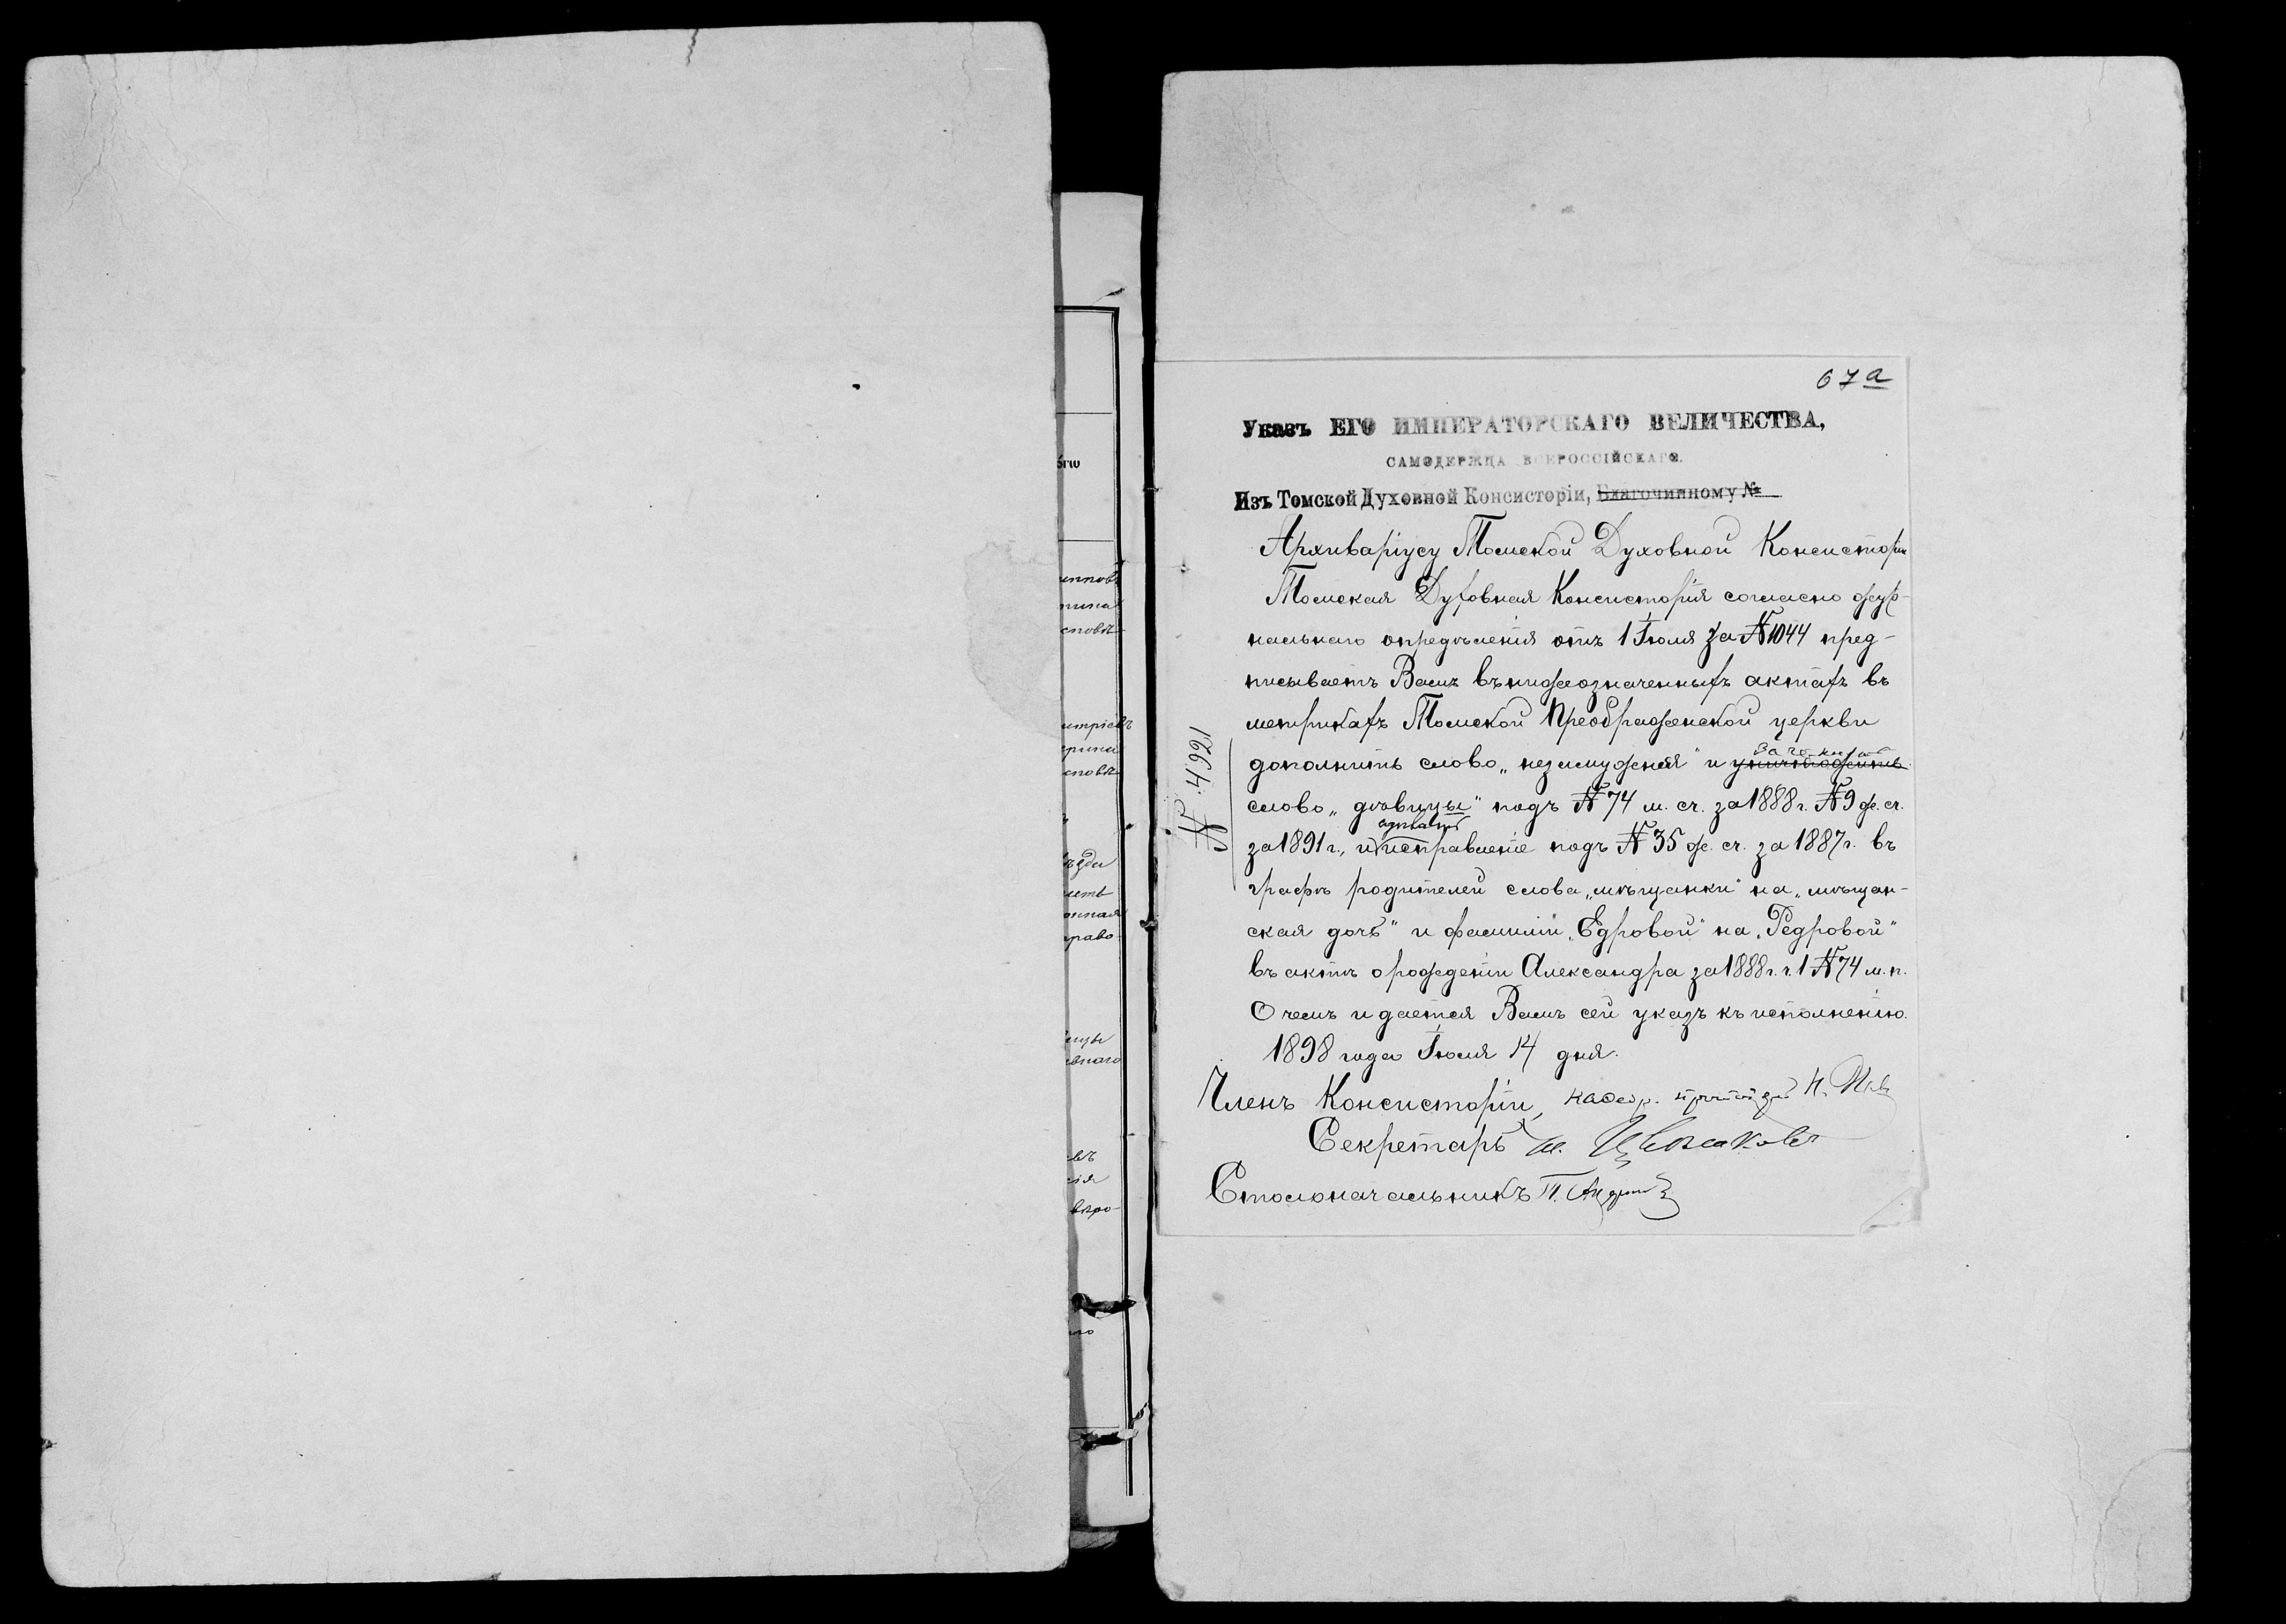 67а
Указъ ЕГО ИМПЕРАТОРСКАГО ВЕЛИЧЕСТВА,
САМОДЕРЖЦА ВСЕРОССІЙСКАГО.
Изъ Томской Духовной Консисторіи, Благочинному №
Архиваріусу Томской Духовной Консисторіи
Томская Духовная Консисторія согласно жур-
нальнаго опредѣленія отъ 1 Іюля за № 1044 пред-
писываетъ Вамъ въ нижеозначенныхъ актахъ въ
метрикахъ Томской Преображенской церкви
дополнить слово „незамужняя" и уничтожить
слово „дѣвицы" подъ № 74 м. ст. за 1888 г. № 9 ж. ст.
за 1891 г., и исправленіе подъ № 35 ж. ст. за 1887 г. въ
графѣ родителей слова „мѣщанки" на „мѣщан-
ская дочь" и фамиліи „Едровой" на „Редровой"
въ актѣ о рожденіи Александра за 1888 г. ч. 1 № 74 м. п.
О чемъ и дается Вамъ сей указъ къ исполненію.
1898 года Іюля 14 дня.
Членъ Консисторіи, каѳедр. протоіерей Н.
Секретарь М.
Столоначальникъ П.
№ 4921